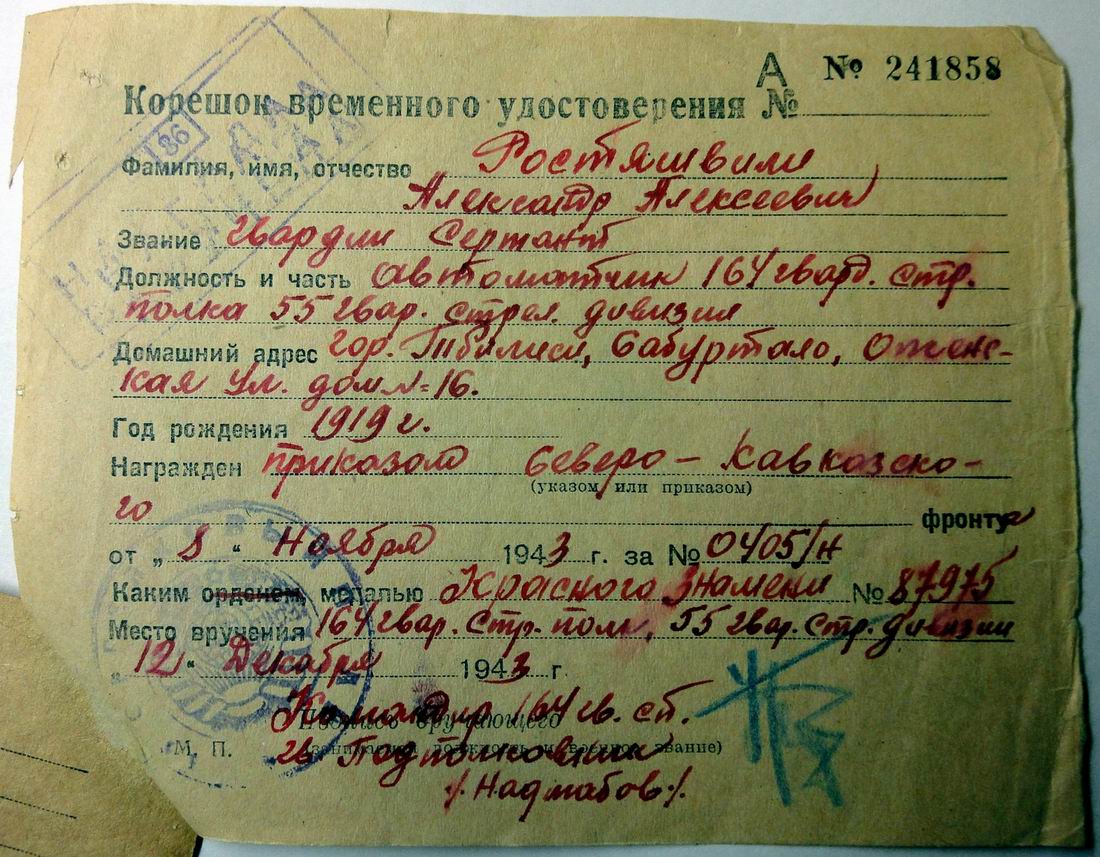 А № 241858
Корешок временного удостоверения №
Фамилия, имя, отчество Ростяшвили
Александр Алексеевич
Звание гвардии Сержант
Должность и часть автоматчик 164 гвард. стр.
полка 55 гвар. стрел. дивизия
Домашний адрес гор. Тбилиси, Сабуртало,
кая ул. дом №16.
Год рождения 1919 г.
Награжден приказом Северо-Кавказско-
(указом или приказом)
го фронту
от „ 8 “ Ноября 1943 г. за № 0405/н
Каким орденом, медалью Красного Знамени № 87975
Место вручения 164 гвар. стр. полк, 55 гвар. стр. дивизии
„ 12 “ Декабря 1943 г.
Командир 164 гв. сп.
Подпись вручающего
М. П. (занимаемая должность и военное звание)
гв Подполковник
/. Надмабов /.
86